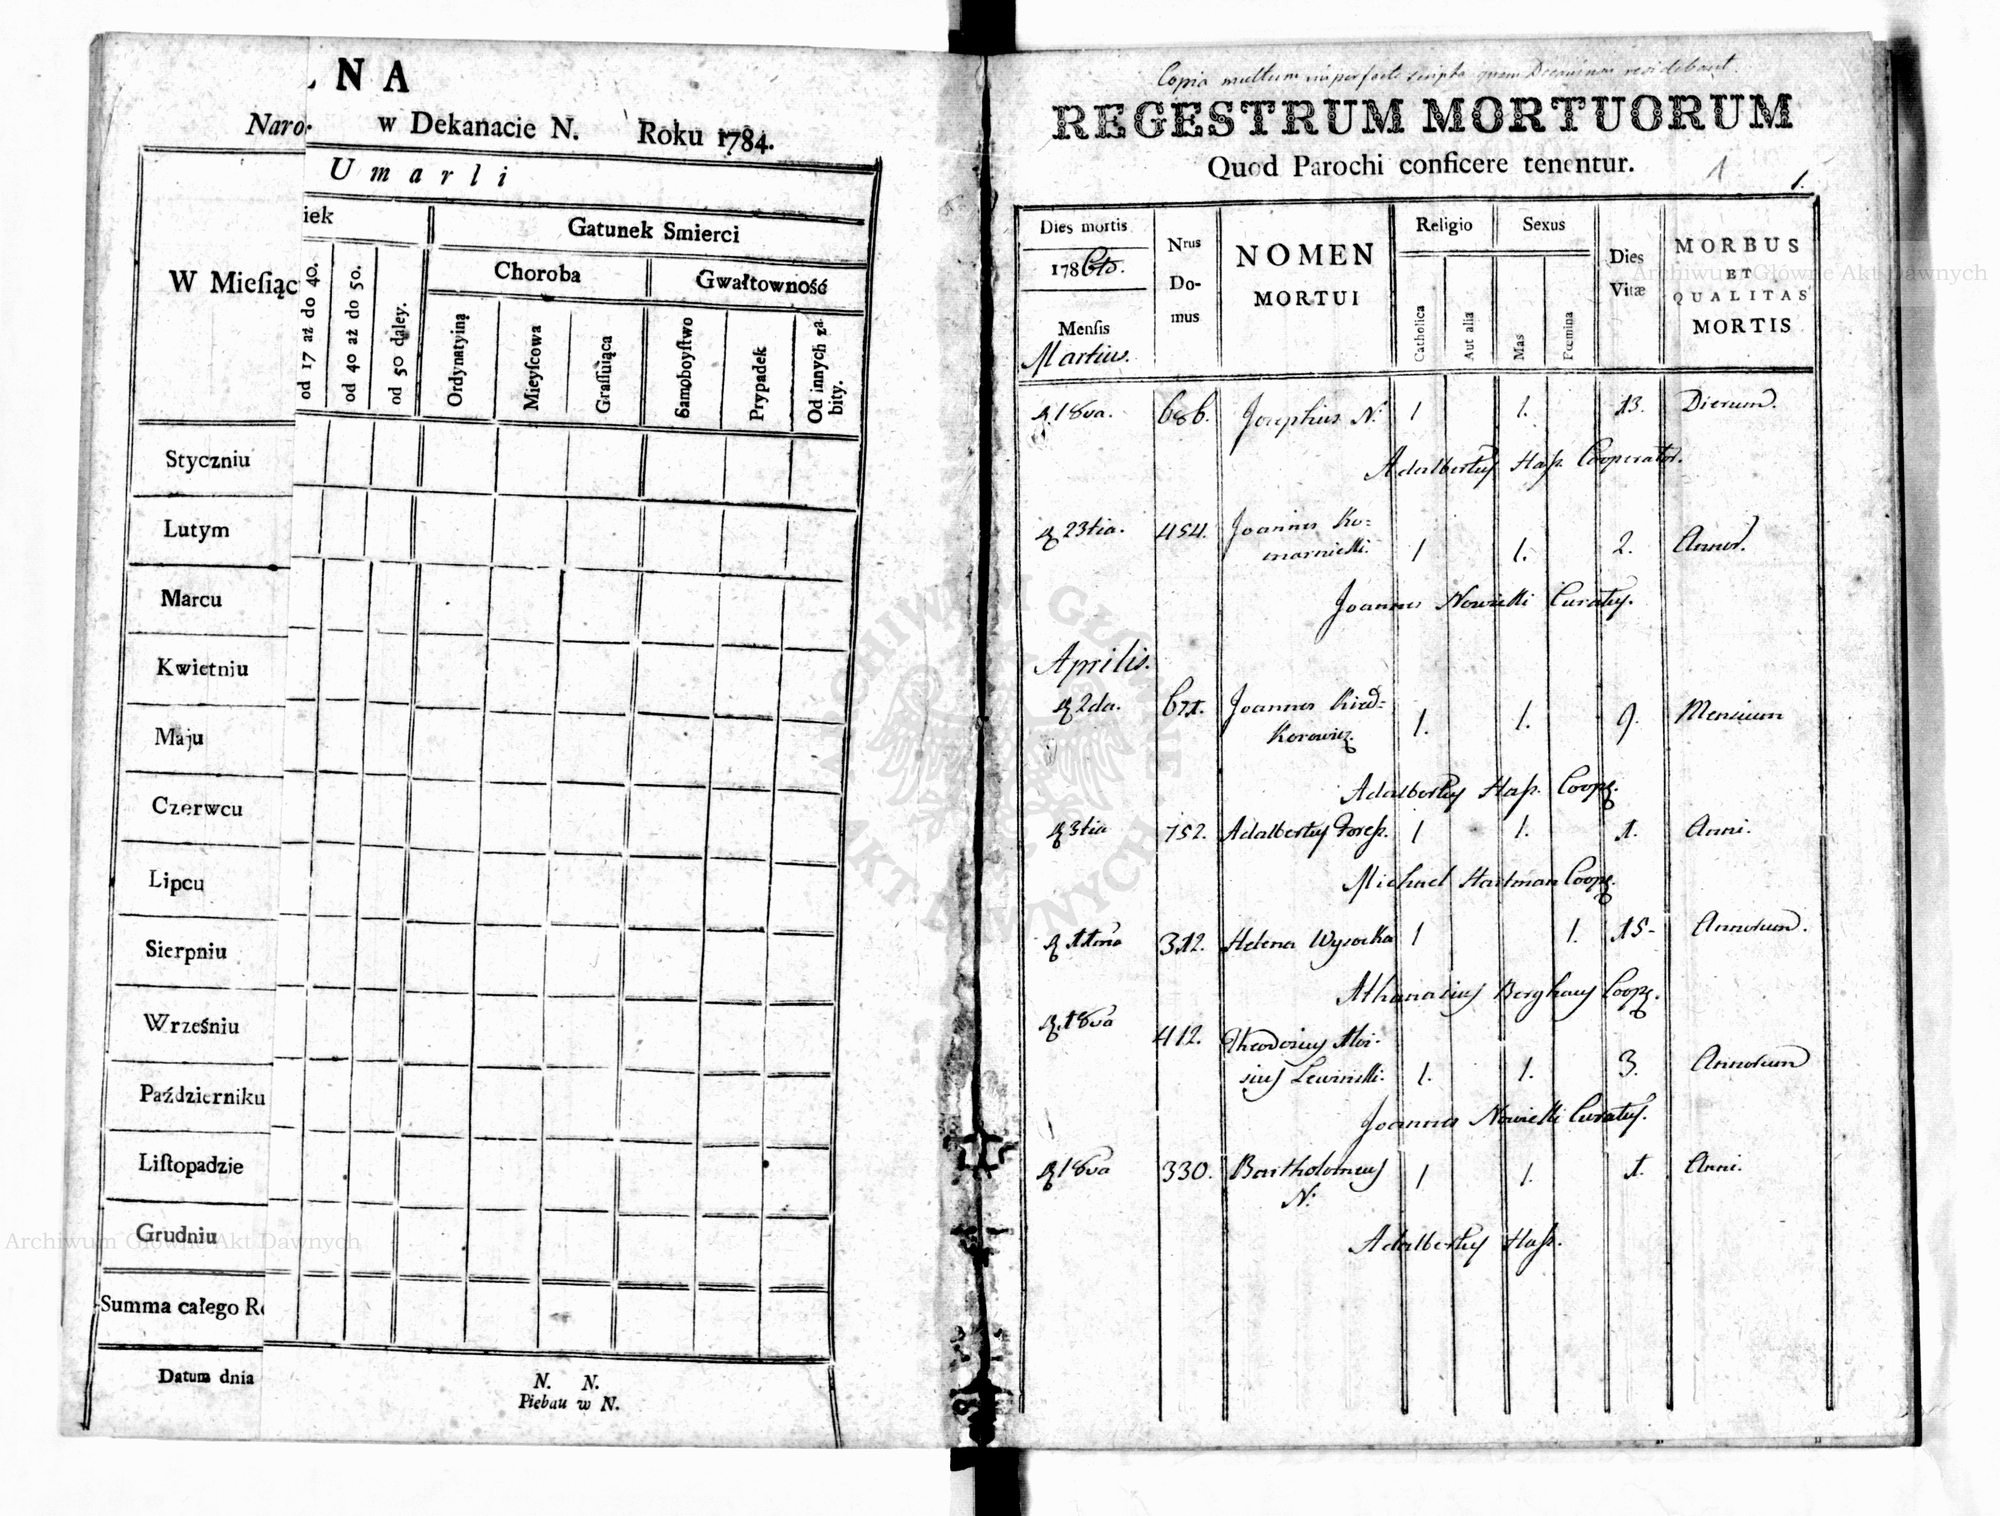 NA
Naro- w Dekanacie N. Roku 1784.
Umarli
iek
Gatunek Smierci
W Mieſiąc
Choroba
Gwałtowność
od 17 aż do 40.
od 40 aż do 50.
od 50 daley.
Ordynatyiną
Mieyſcowa
Graſſuiąca
Samoboyſtwo
Prypadek
Od innych zabity.
Styczniu
Lutym
Marcu
Kwietniu
Maju
Czerwcu
Lipcu
Sierpniu
Wrześniu
Październiku
Liſtopadzie
Grudniu
Summa całego Ro
Datum dnia
N. N.
Plebau w N.
Copia multum imperfecte scripta quam
REGESTRUM MORTUORUM
Quod Parochi conficere tenentur.
1 1.
Dies mortis
Nrus Domus
NOMEN MORTUI
Religio
Sexus
Dies Vitæ
MORBUS ET QUALITAS MORTIS
178
Mensis
Martius.
Catholica
Aut alia
Mas
Fœmina
18va. 686. Josephus N: 1 1. 13. Dierum.
Adalbertus Haß. Cooperator.
23tia. 454. Joannes Ko=
marnicki. 1 1. 2. Annor.
Joannes Nowicki Curatus.
Aprilis.
2da. 671. Joannes
1. 1. 9. Mensium
Adalbertus Haß. Coop.
3tia 752. Adalbertus 1 1. 1. Anni.
Michael Hartman Coop.
312. Helena Wysocka 1 1. 15- Annorum.
Athanasius Berghaus Coop.
18va 412. Theodosius Aloi-
sius Lewinski. 1. 1. 3. Annorum
Joannes Nowicki Curatus.
18va 330. Bartholomeus
N: 1 1. 1. Anni.
Adalbertus Haß.
Archiwum Główne Akt Dawnych
Archiwum Główne Akt Dawnych
ARCHIWUM GŁÓWNE AKT DAWNYCH